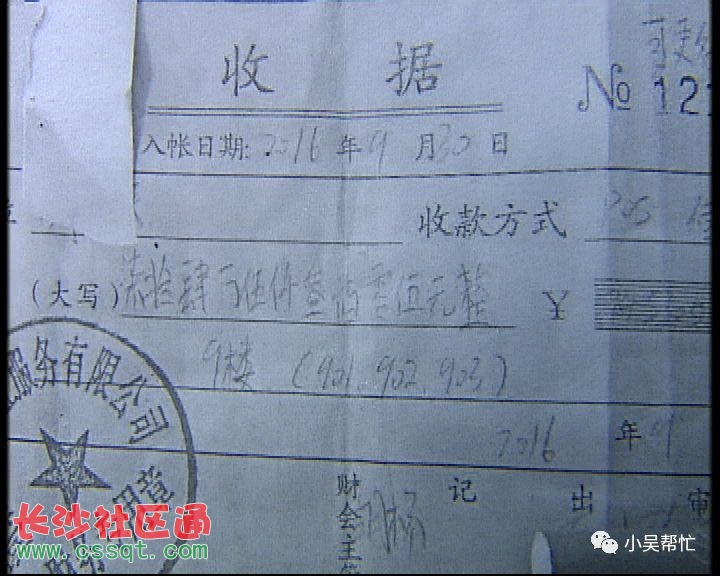 收 据
№ 12
入帐日期: 2016 年 9 月 30 日
收款方式 POS
(大写) 柒拾肆万伍仟叁佰零伍元整 ¥
9楼 (901、902、903)
服务有限公司
2016 年 9
财会主管 记 出 审
长沙社区通
www.cssqt.com
小吴帮忙